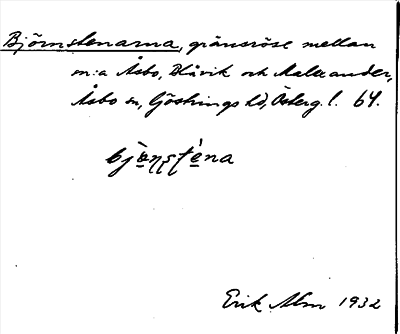 Björnstenarna, gränsröse mellan
sn:a Åsbo, Blåvik och Malexander,
Åsbo sn, Göstrings hd, Österg. l. 64.
Erik Alm 1932